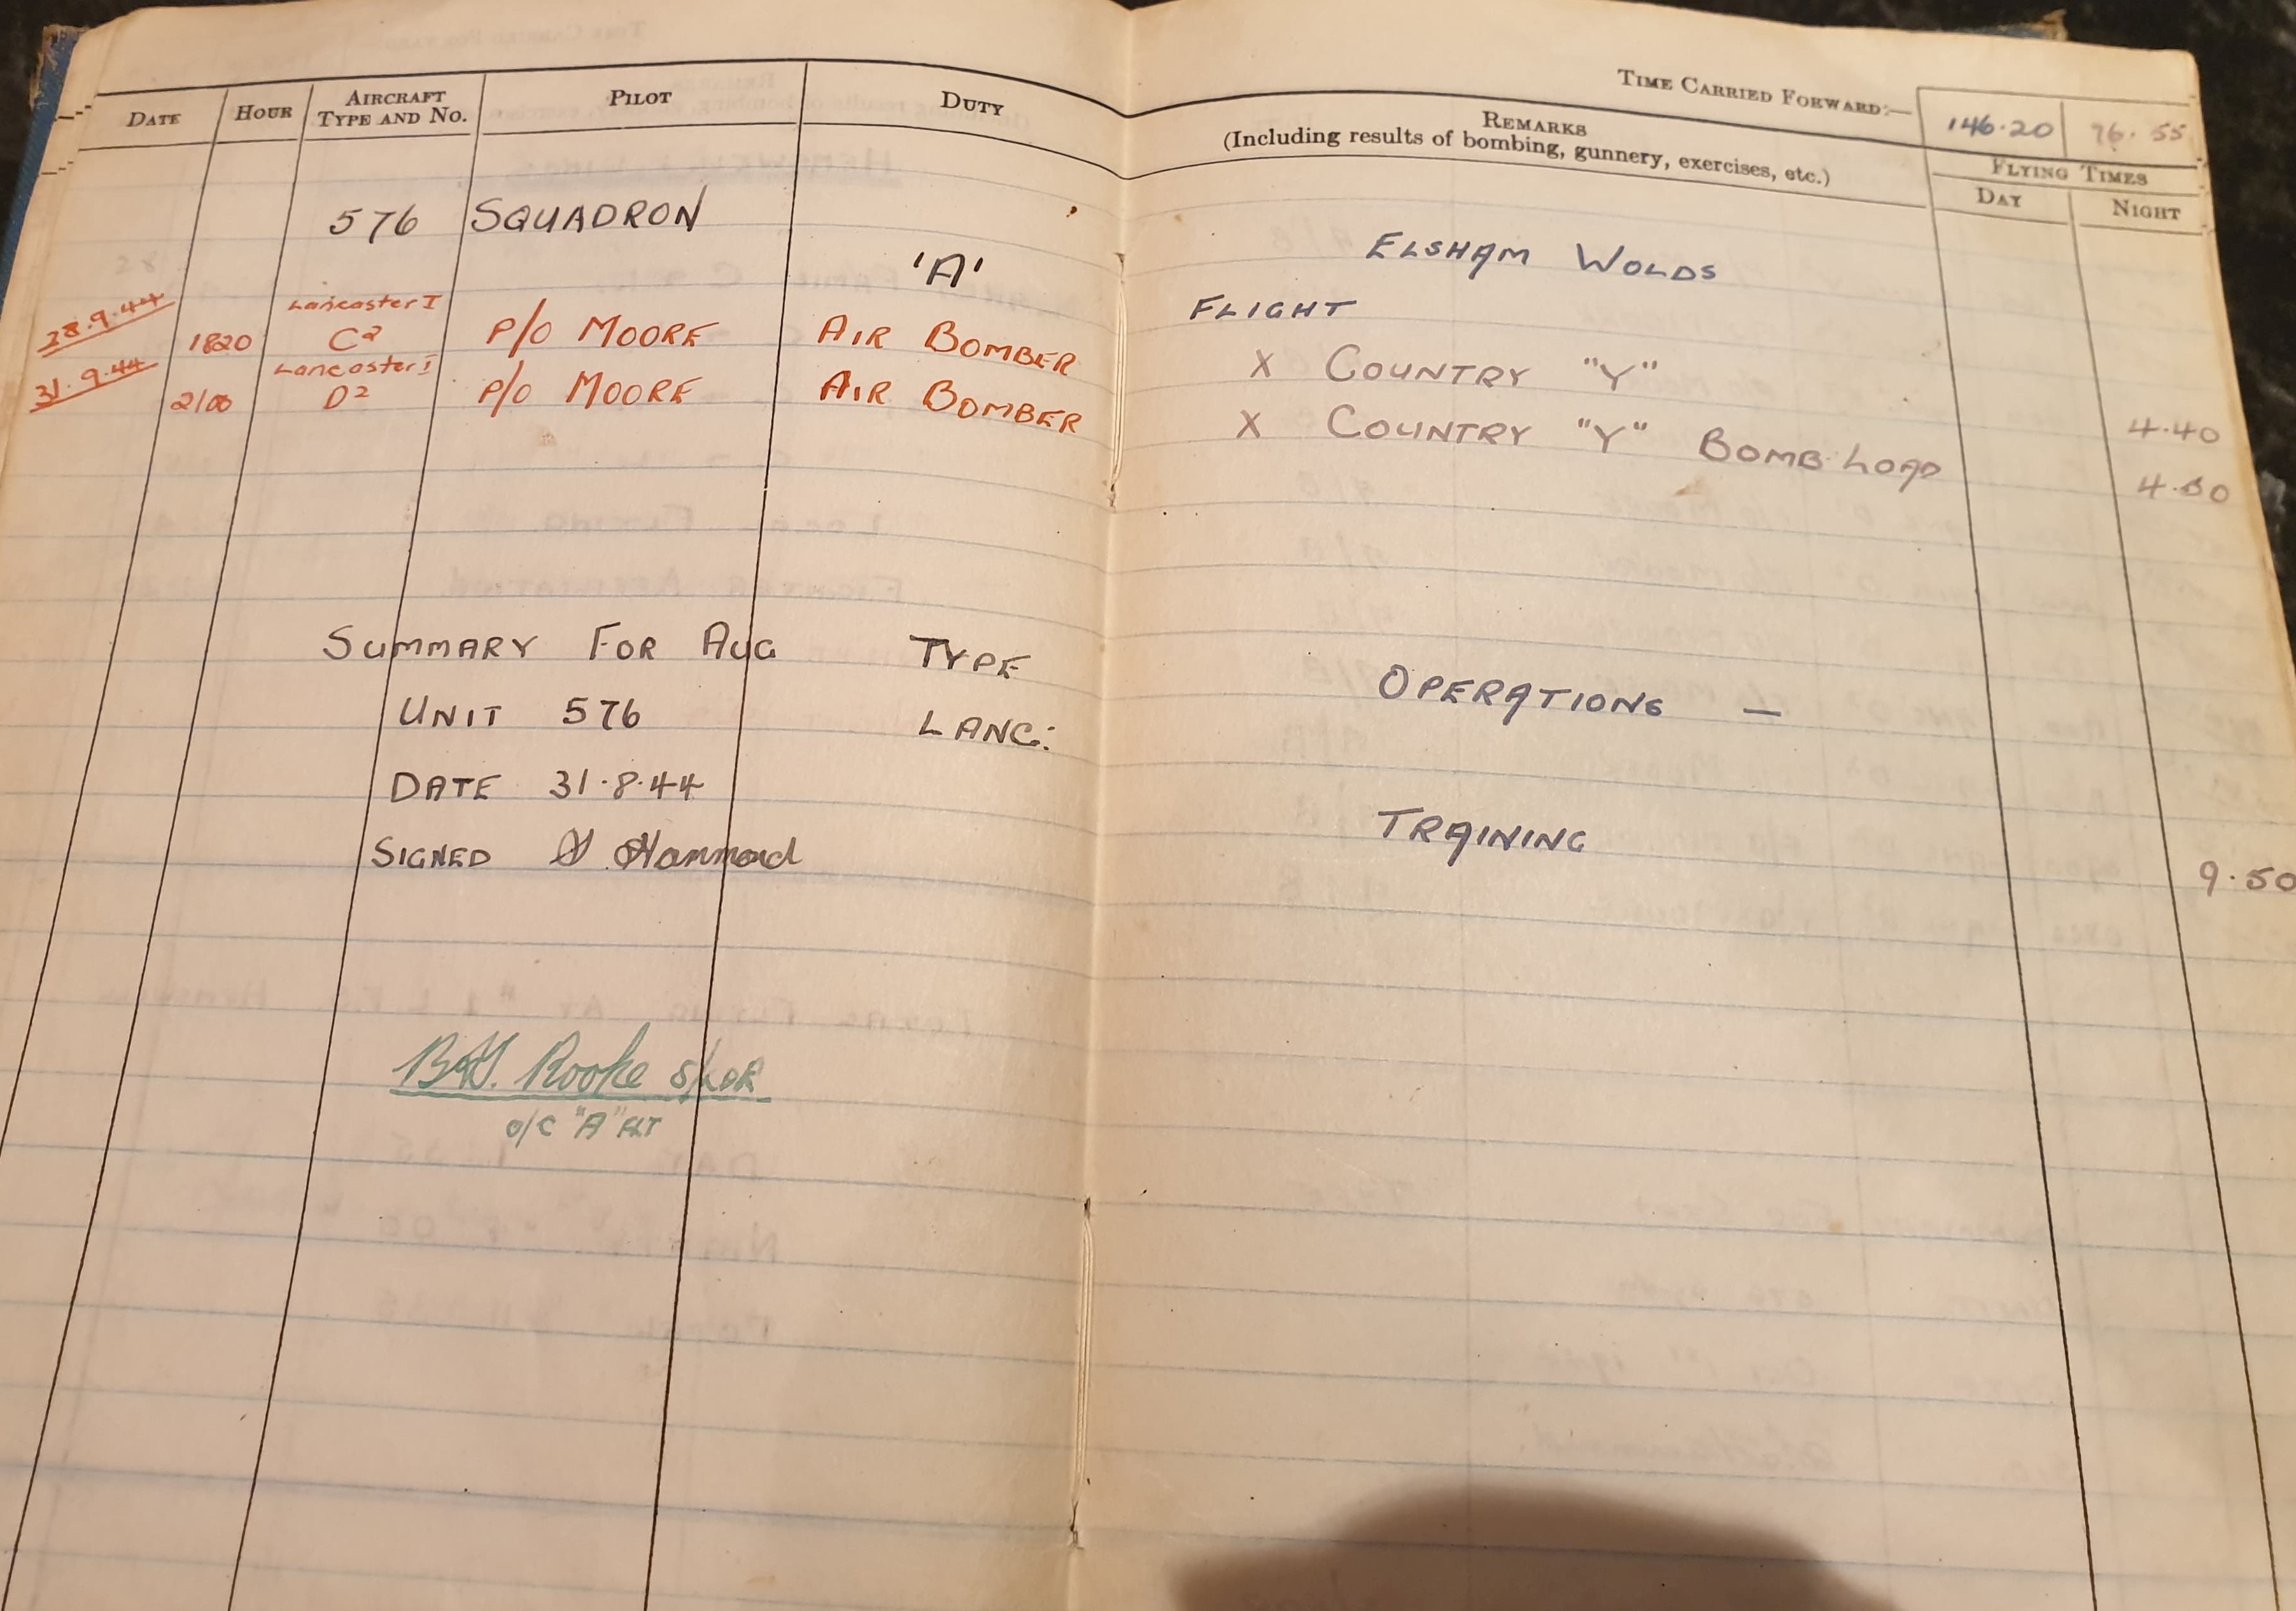 TIME CARRIED FORWARD:— 146.20 76.55
DATE HOUR AIRCRAFT TYPE AND NO. PILOT DUTY REMARKS
(Including results of bombing, gunnery, exercises, etc.)
FLYING TIMES
DAY NIGHT
576 SQUADRON 'A' FLIGHT
ELSHAM WOLDS
28.9.44 1820 Lancaster I C2 P/O MOORE AIR BOMBER X COUNTRY "Y" 4.40
31.9.44 2100 Lancaster I D2 P/O MOORE AIR BOMBER X COUNTRY "Y" BOMB LOAD
SUMMARY FOR AUG TYPE OPERATIONS —
UNIT 576 LANC:
DATE 31.8.44 TRAINING 9.50
SIGNED Hammond
Rooke S/LDR
O/C "A" FLT